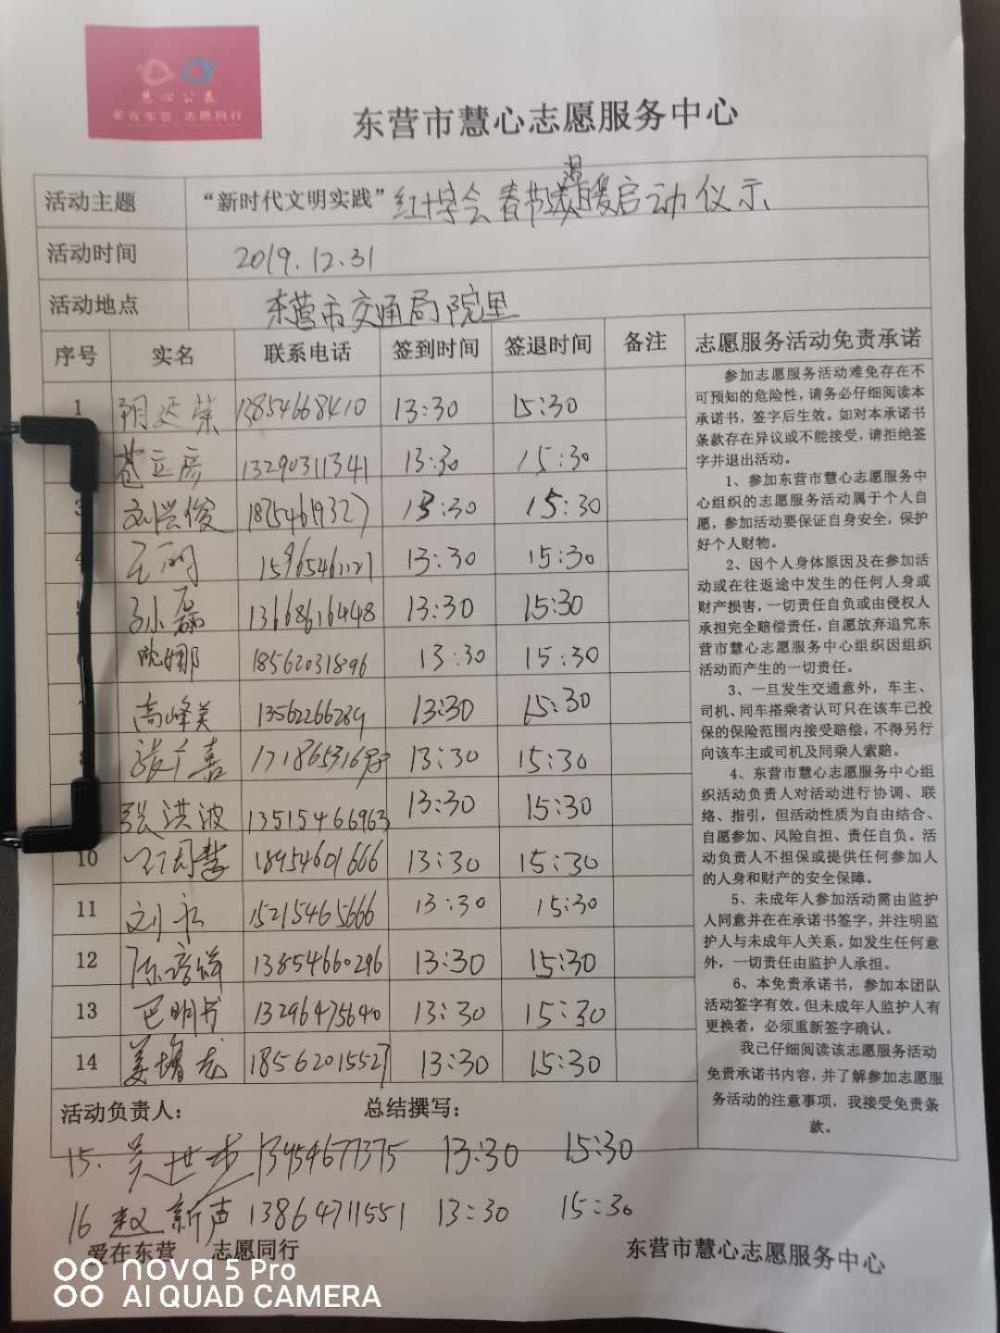 慧心公益
爱在东营 志愿同行
东营市慧心志愿服务中心
活动主题 “新时代文明实践” 红十字会春节温暖启动仪示
活动时间 2019.12.31
活动地点 东营市交通局院里
序号 实名 联系电话 签到时间 签退时间 备注 志愿服务活动免责承诺
1 13854668410 13:30 15:30
苍立房 13290311341 13:30 15:30
3 刘兴俊 18754619327 13:30 15:30
4 王丽 15965461121 13:30 15:30
5 孙磊 13668616448 13:30 15:30
18562031896 13:30 15:30
7 高峰美 13562266289 13:30 15:30
8 张广嘉 13:30 15:30
张洪波 13515466963 13:30 15:30
10 18954601666 13:30 15:30
11 刘永 15215465666 13:30 15:30
12 13854660296 13:30 15:30
13 巴明书 13296475640 13:30 15:30
14 姜增志 18562015527 13:30 15:30
参加志愿服务活动难免存在不
可预知的危险性，请务必仔细阅读本
承诺书，签字后生效。如对本承诺书
条款存在异议或不能接受，请拒绝签
字并退出活动。
1、参加东营市慧心志愿服务中
心组织的志愿服务活动属于个人自
愿，参加活动要保证自身安全，保护
好个人财物。
2、因个人身体原因及在参加活
动或在往返途中发生的任何人身或
财产损害，一切责任自负或由侵权人
承担完全赔偿责任，自愿放弃追究东
营市慧心志愿服务中心组织因组织
活动而产生的一切责任。
3、一旦发生交通意外，车主、
司机、同车搭乘者认可只在该车已投
保的保险范围内接受赔偿，不得另行
向该车主或司机及同乘人索赔。
4、东营市慧心志愿服务中心组
织活动负责人对活动进行协调、联
络、指引，但活动性质为自由结合、
自愿参加、风险自担、责任自负。活
动负责人不担保或提供任何参加人
的人身和财产的安全保障。
5、未成年人参加活动需由监护
人同意并在在承诺书签字，并注明监
护人与未成年人关系，如发生任何意
外，一切责任由监护人承担。
6、本免责承诺书，参加本团队
活动签字有效。但未成年人监护人有
更换者，必须重新签字确认。
我已仔细阅读该志愿服务活动
免责承诺书内容，并了解参加志愿服
务活动的注意事项，我接受免责条
款。
活动负责人： 总结撰写：
15. 吴世 13454677375 13:30 15:30
16 赵新声 13864711551 13:30 15:30
爱在东营 志愿同行 东营市慧心志愿服务中心
nova 5 Pro
AI QUAD CAMERA